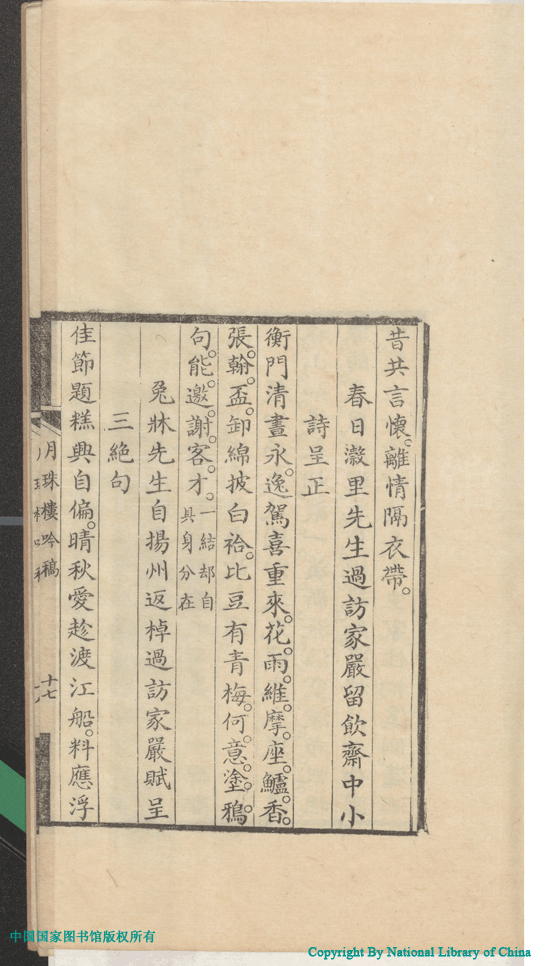 昔共言懷。離情隔衣帶。
春日瀔里先生過訪家嚴留飲齋中小
詩呈正
衡門清晝永。逸駕喜重來。花。雨。維。摩。座。鱸。香。
張。翰。盃。卸綿披白袷。比豆有青梅。何。意。塗。鴉。
句。能。邀。謝。客。才。一結却自
具身分在
兔牀先生自揚州返棹過訪家嚴賦呈
三絶句
佳節題糕興自偏。晴秋愛趁渡江船。料應浮
月珠樓吟稿
十七
中国国家图书馆版权所有
Copyright By National Library of China